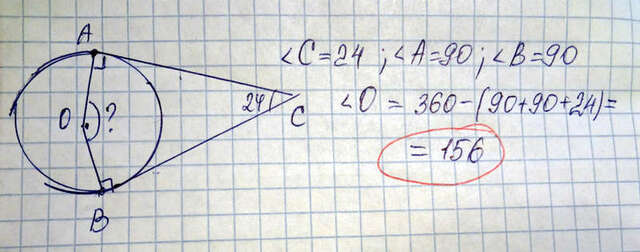 A
∠C=24 ; ∠A=90 ; ∠B=90
24
C
O ?
∠O = 360-(90+90+24)=
= 156
B